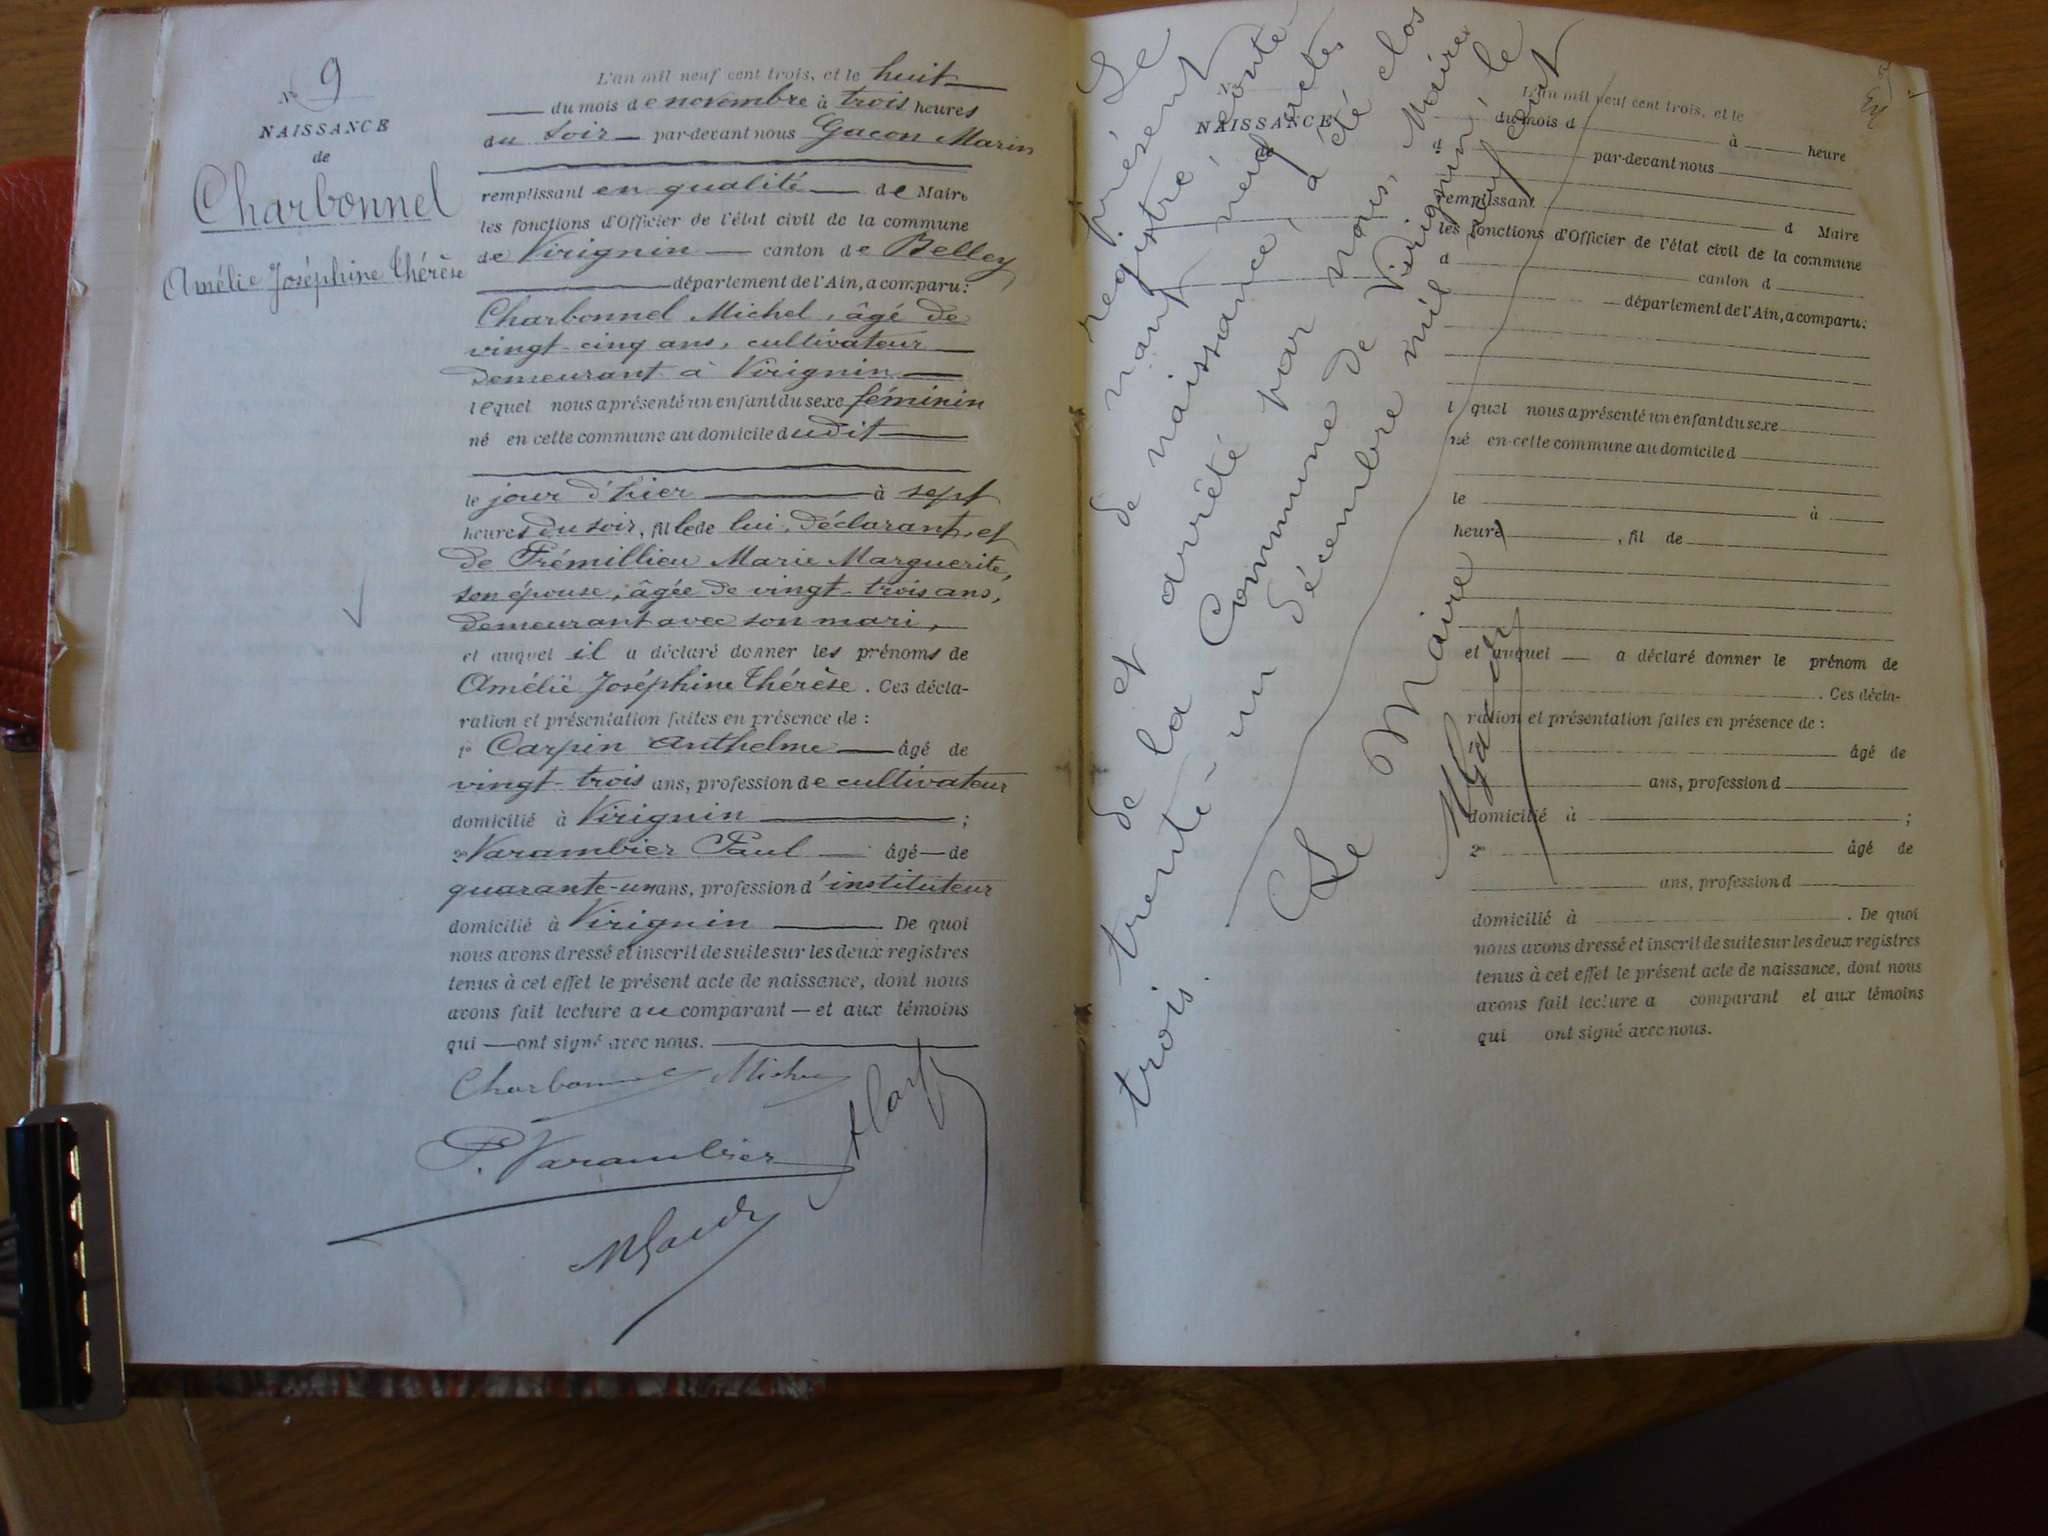 N° 9
NAISSANCE
de
Charbonnel
Amélie Joséphine Thérèse
L'an mil neuf cent trois, et le huit
du mois de novembre à trois heures
du soir par-devant nous Gacon Marin
remplissant en qualité de Maire
les fonctions d'Officier de l'état civil de la commune
de Virignin canton de Belley
département de l'Ain, a comparu:
Charbonnel Michel, âgé de
vingt-cinq ans, cultivateur
demeurant à Virignin
lequel nous a présenté un enfant du sexe féminin
né en cette commune au domicile dudit
le jour d'hier à sept
heures du soir, fille de lui, déclarant, et
de Trémillieu Marie Marguerite,
son épouse, âgée de vingt-trois ans,
demeurant avec son mari,
et auquel il a déclaré donner les prénoms de
Amélie Joséphine Thérèse. Ces décla-
ration et présentation faites en présence de :
1° Carpin Anthelme âgé de
vingt-trois ans, profession de cultivateur
domicilié à Virignin ;
2° Varambier Paul âgé de
quarante-un ans, profession d'instituteur
domicilié à Virignin De quoi
nous avons dressé et inscrit de suite sur les deux registres
tenus à cet effet le présent acte de naissance, dont nous
avons fait lecture au comparant et aux témoins
qui ont signé avec nous.
Charbonnel Michel
P. Varambier
Le présent
registre conte
nant neuf actes
de naissance, a été clos
et arrêté par nous, Maire
de la Commune de Virignin, le
trente-un décembre mil neuf cent
trois.
Le Maire
N°
NAISSANCE
de
L'an mil neuf cent trois, et le
du mois d à heure
par-devant nous
remplissant d Maire
les fonctions d'Officier de l'état civil de la commune
d canton d
département de l'Ain, a comparu:
l quel nous a présenté un enfant du sexe
né en cette commune au domicile d
le à
heure , fil de
et auquel a déclaré donner le prénom de
. Ces décla-
ration et présentation faites en présence de :
1° âgé de
ans, profession d
domicilié à ;
2° âgé de
ans, profession d
domicilié à . De quoi
nous avons dressé et inscrit de suite sur les deux registres
tenus à cet effet le présent acte de naissance, dont nous
avons fait lecture a comparant et aux témoins
qui ont signé avec nous.